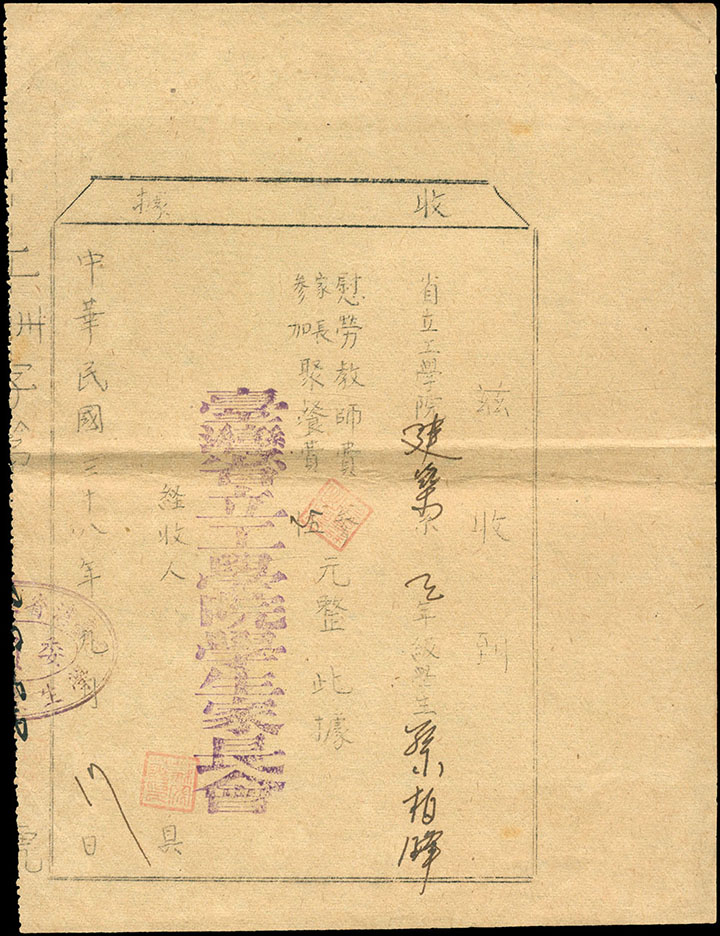 收據
茲收到
省立工學院建築系 年級學生蔡柏暉
慰勞教師費
家長
參加聚餐費
元整此據
臺灣省立工學院學生家長會
經收人 具
中華民國三十八年九月 日